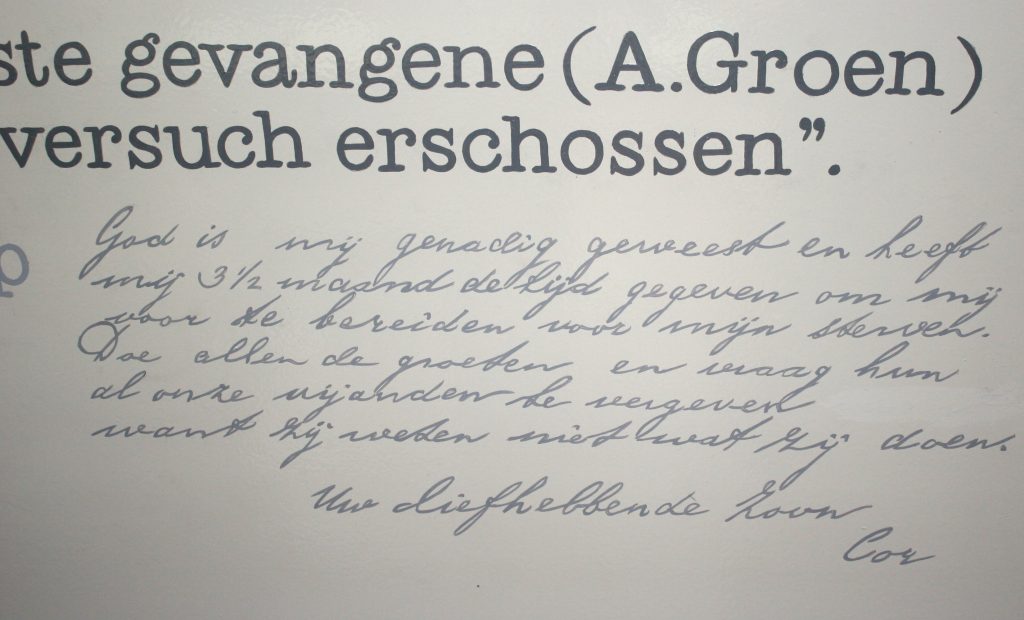 ste gevangene (A. Groen)
versuch erschossen”.
God is mij genadig geweest en heeft
mij 3 1/2 maand de tijd gegeven om mij
voor te bereiden voor mijn sterven.
Doe allen de groeten en vraag hun
al onze vijanden te vergeven
want zij weten niet wat zij doen.
Uw liefhebbende Zoon
Cor